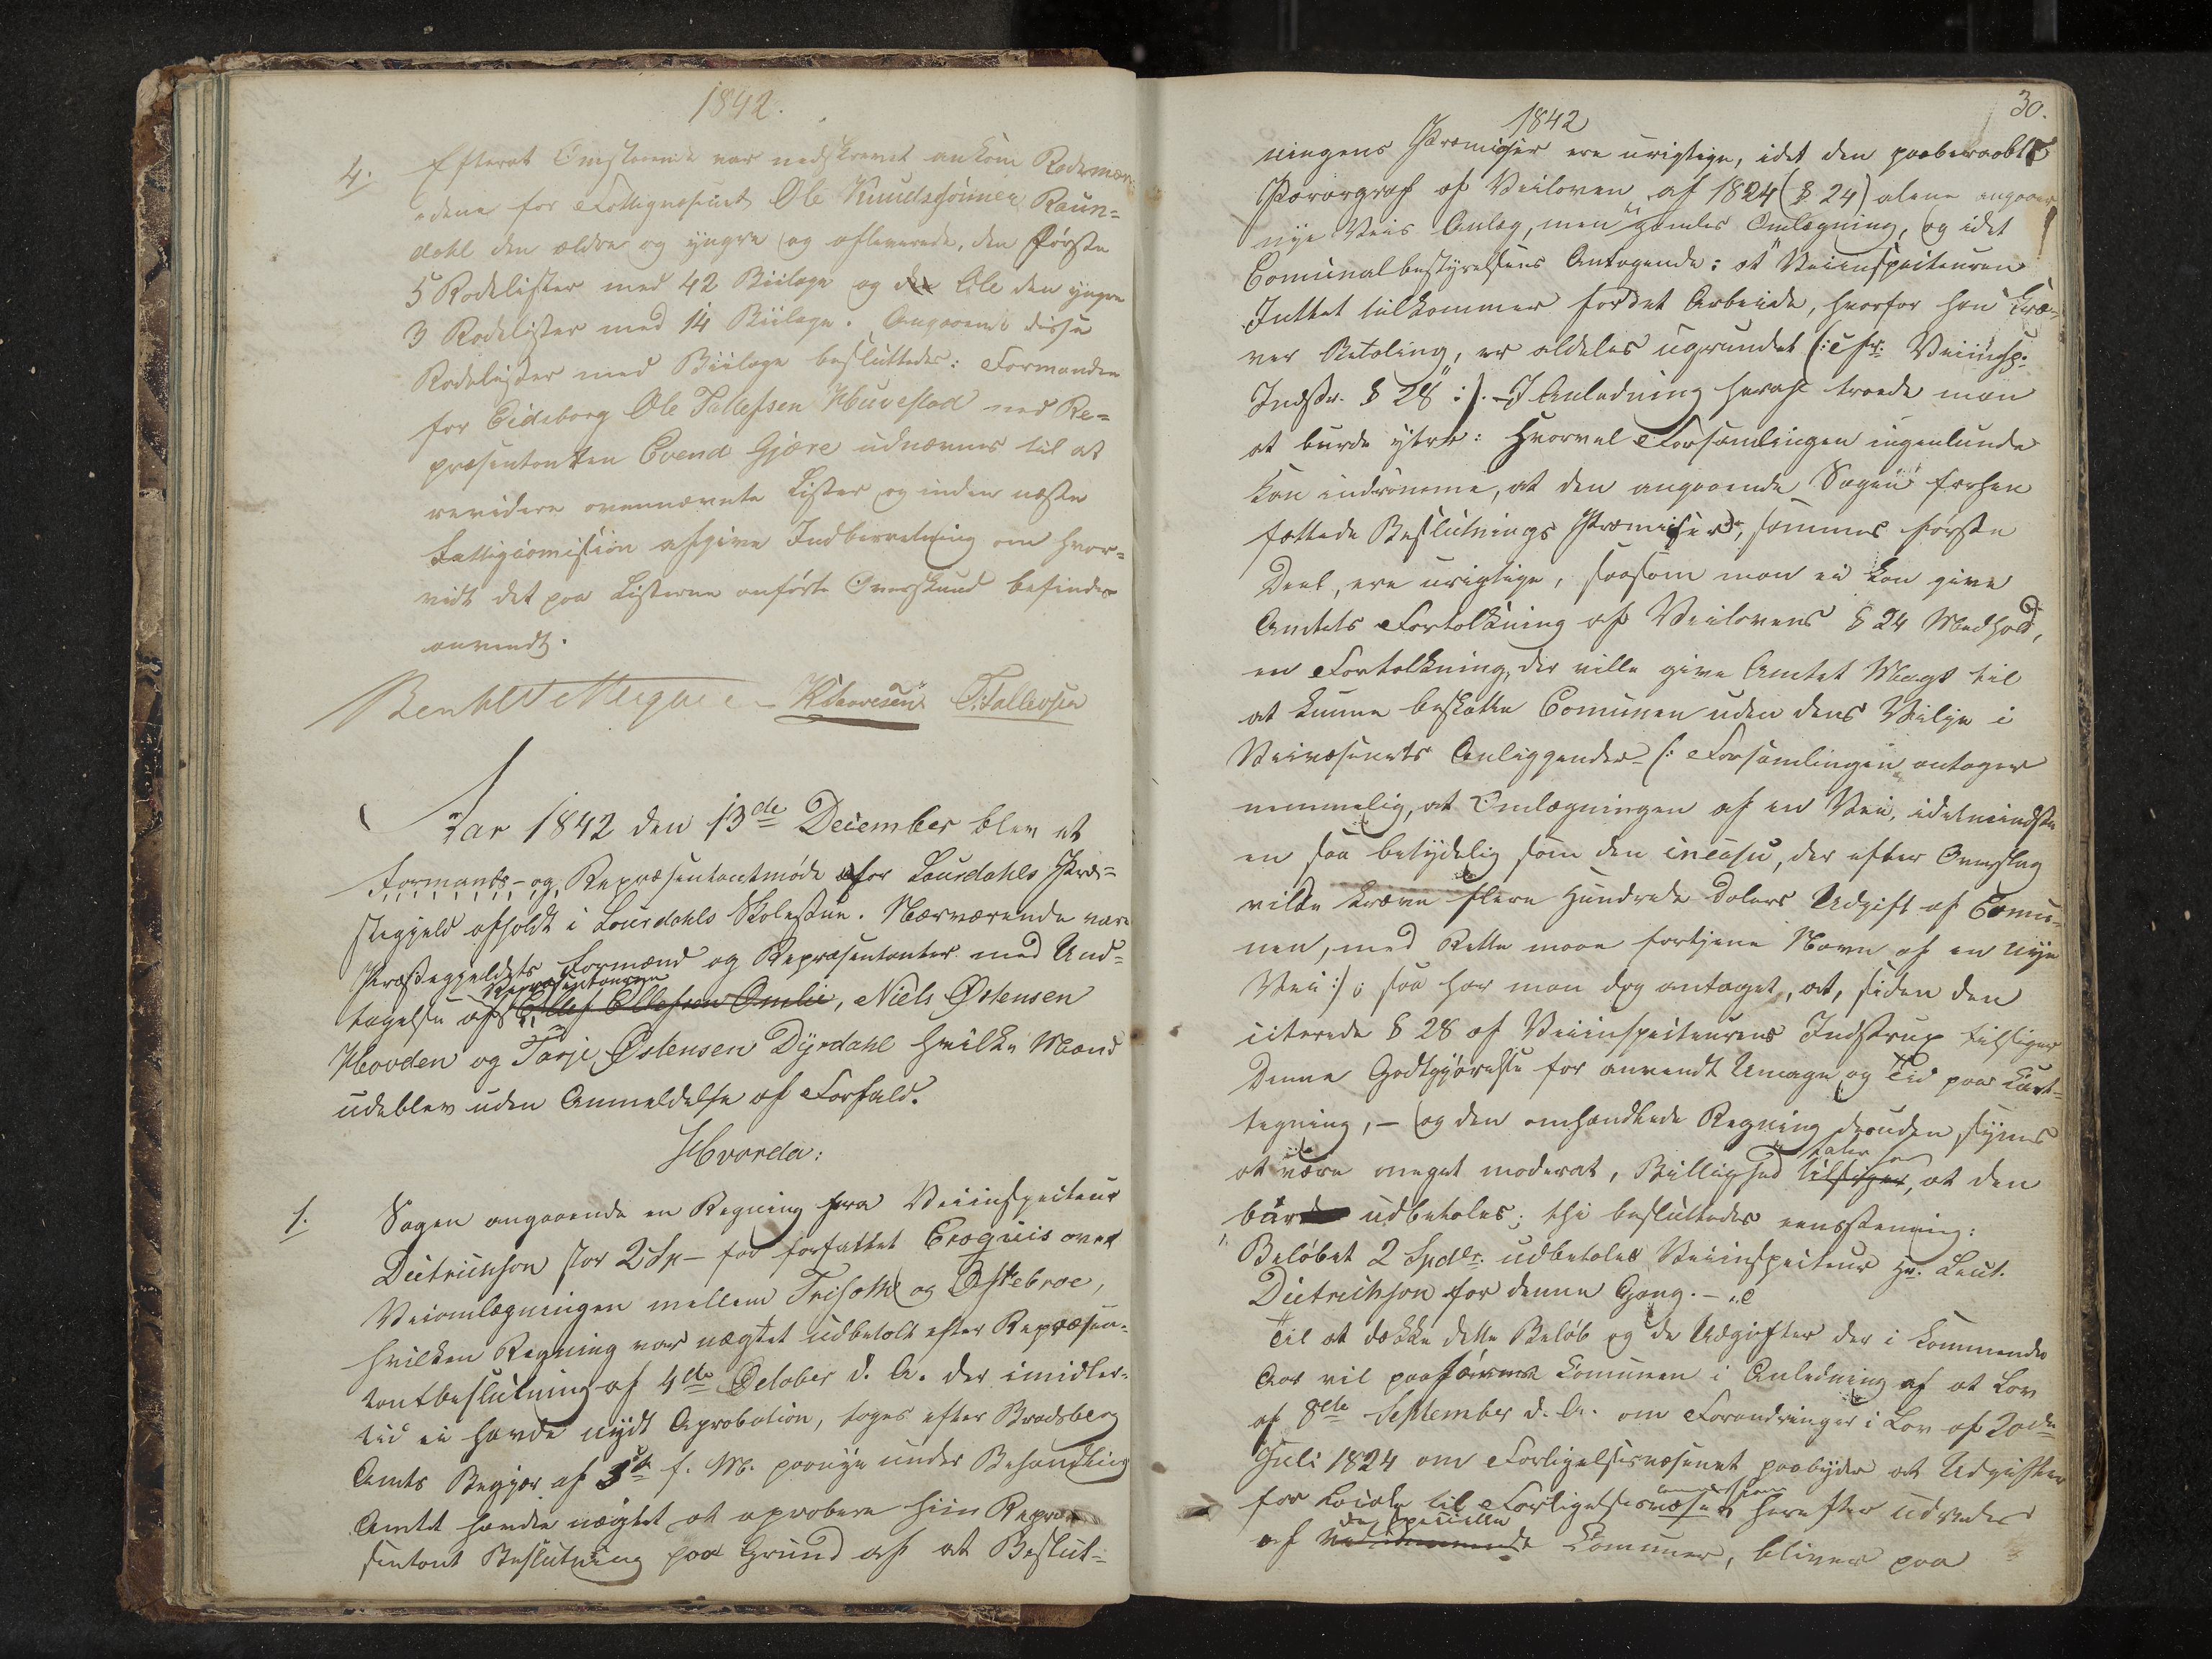 1842.
4. Efterat Omstaaende var nedskrevet ankom Rodemæn-
dene for Fattigvæsenet Ole Knudsschønner Raun=
dahl den ældre og yngre og afleverede, den første
5 Rodelister med 42 Biilage og den Ole den yngre
3 Rodelister med 14 Biilage. Angaaende disse
Rodelister med Biilage besluttedes: Formanden
for Eidsborg Ole Tallefsen Huvestad med Re=
præsentanten Evend Gjære udnævnes til at
revidere ovennævnte Lister og inden næste
Fattigcomission afgive Indberetning om hvor=
vidt det paa Listerne anførte Overskud befindes
anvendt.
T. Tallevsen
Aar 1842 den 13de December blev et
Formands- og Repræsentantmøde for Laurdahls Præ=
stegjeld afholdt i Laurdahls Skolestue. Nærværende vare
Præstegjeldets Formænd og Repræsentanter med Und=
Repræsentanten
tagelse af Ellef Ellefsen Omlie, Niels Østensen
Hovden og Tarje Østensen Dyrdahl hvilke Mænd
udeblev uden Anmeldelse af Forfald.
Hvorda:
1. Sagen angaaende en Regning fra Veiinspecteur
Dietrichson stor 2 Sp – for forfattet Croquis over
Veiomlægningen mellem Trisæth og Østebroe,
hvilken Regning var nægtet udbetalt efter Repræsen=
tantbeslutning af 4de October d. A. der imidler=
tid ei havde nydt Aprobation, toges efter Bradsberg
Amts Begjær af 5te f. M. paanye under Behandling
Amtet havde nægtet at aprobere hiin Repræ-
sentant Beslutning paa Grund af at Beslut=
30.
1842
ningens Præmisser ere urigtige, idet den paaberaabte
Pararagraf af Veiloven af 1824 (§ 24) alene angaaer
nye Veies Anlæg, men ei gamles Omlægning, og idet
Comunalbestyrelsens Antagende: at "Veiinspecteuren
Intet tilkommer for det Arbeide, hvorfor han kræ-
ver Betaling", er aldeles ugrundet (: cfr. Veiinsp.
Instr. § 28 :). – I Anledning heraf troede man
at burde yttre: Hvorvel Forsamlingen ingenlunde
kan indrømme, at den angaaende Sagen forhen
fattede Beslutnings Præmisser, sammes første
Deel, ere urigtige, saasom man ei kan give
Amtets Fortolkning af Veilovens § 24 Medhold,
en Fortolkning, der ville give Amtet Magt til
at kunne beskatte Comunen uden dens Vilje i
Veivæsenets Anliggender – (: Forsamlingen antager
nemmelig, at Omlægningen af en Vei, idetmindste
en saa betydelig som den in casu, der efter Overslag
vilde kræve flere Hundrede Dalers Udgift af Comu-
nen, med Rette maae fortjene Navn af en nye
Vei :) ; saa har man dog antaget, at, siden den
citerede § 28 af Veiinspecteurens Instrux tilsiger
Denne Godtgjørelse for anvendt Umage og Tid paa Kart=
tegning, – og den omhandlede Regning desuden synes
taler for
at være meget moderat, Billighed tilsiger, at den
bør udbetales; thi besluttedes eensstemmig:
Beløbet 2 Spdlr. udbetales Veiinspecteur Hr. Leut.
Dietrichson for denne Gang. –
Til at dække dette Beløb og de Udgifter der i kommende
Aar vil paaføres Comunen i Anledning af at Lov
af 8de September d. A. om Forandringer i Lov af 20de
Juli 1824 om Forligelsesvæsenet paabyder at Udgifter
commission
for Locale til Forligelsesvæsen herefter udredes
de specielle
af vedkommende Communer, bliver paa